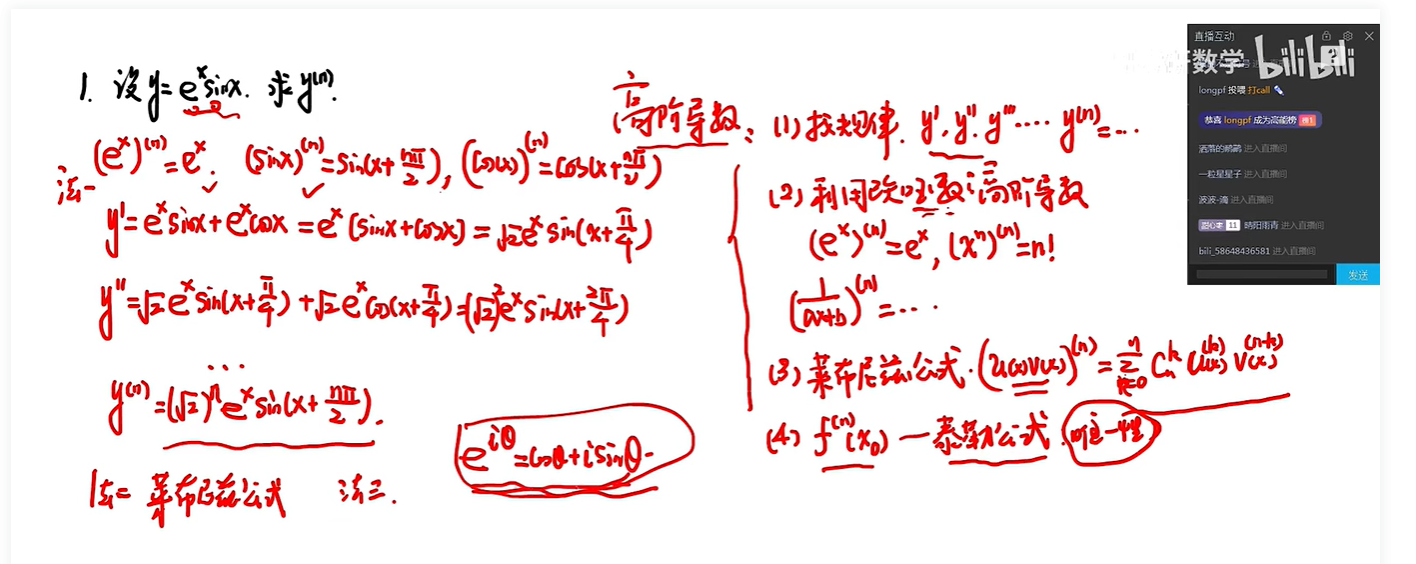 1. 设y=e^x sinx. 求y^(n).
法一 (e^x)^(n)=e^x. (sinx)^(n)=sin(x+nπ/2), (cosx)^(n)=cos(x+nπ/2)
y'=e^x sinx+e^x cosx=e^x(sinx+cosx)=√2e^x sin(x+π/4)
y''=√2e^x sin(x+π/4)+√2e^x cos(x+π/4)=(√2)^2e^x sin(x+2π/4)
...
y^(n)=(√2)^n e^x sin(x+nπ/2).
法二 莱布尼兹公式 法三.
e^iθ=cosθ+i sinθ.
高阶导数: (1) 找规律. y', y'', y'''.... y^(n)=...
(2) 利用已知函数高阶导数
(e^x)^(n)=e^x, (x^n)^(n)=n!
(1/(ax+b))^(n)=...
(3) 莱布尼兹公式. (u(x)v(x))^(n)=∑_{k=0}^n C_n^k u(x)^(k) v(x)^(n-k)
(4) f^(n)(x₀) — 泰勒公式. 唯一性
直播互动
研数学 bilibili
longpf 投喂 打call
恭喜 longpf 成为高能榜 榜1
洒落的鹧鹉 进入直播间
一粒星星子 进入直播间
波波-滴 进入直播间
甜心宝 11 晴阳雨青 进入直播间
bili_58648436581 进入直播间
发送